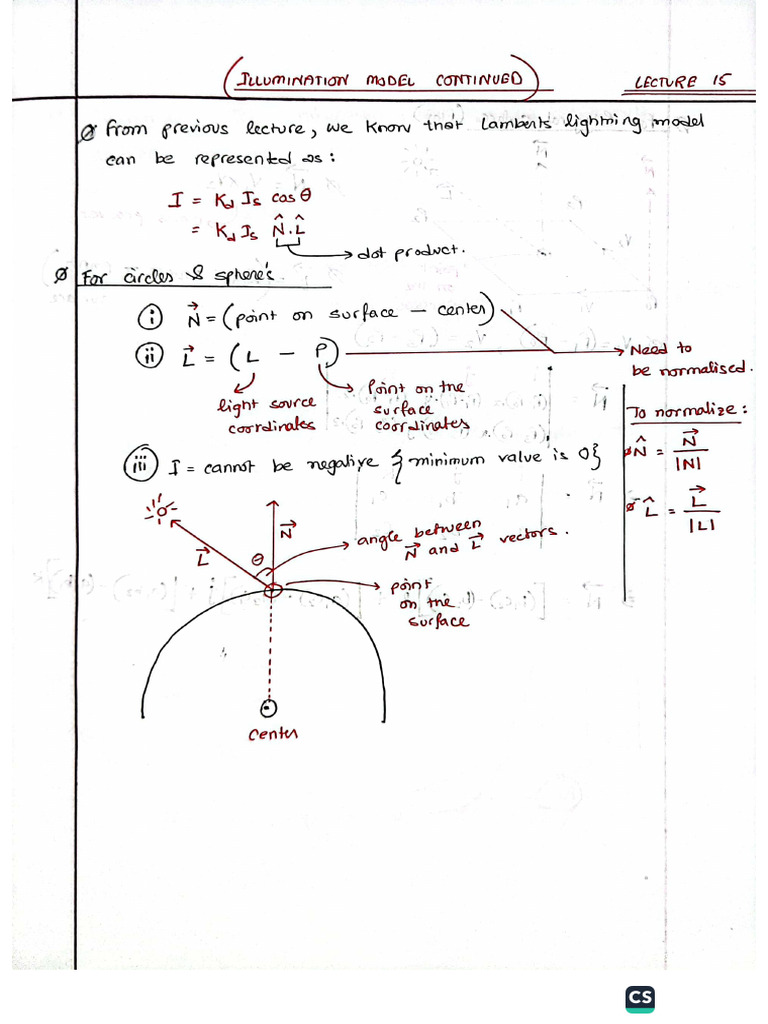 ILLUMINATION MODEL CONTINUED
LECTURE 15
From previous lecture, we know that Lamberts lightning model
can be represented as:
I = Kd Is cos θ
= Kd Is N̂.L̂
dot product.
For circles & sphere's
i N⃗ = (point on surface - center)
ii L⃗ = (L - P)
Need to
be normalised.
light source
coordinates
Point on the
surface
coordinates
To normalize:
N̂ = N⃗ / |N|
L̂ = L⃗ / |L|
iii I = cannot be negative {minimum value is 0}
N⃗
L⃗
θ
angle between
N⃗ and L⃗ vectors.
point
on the
surface
center
CS